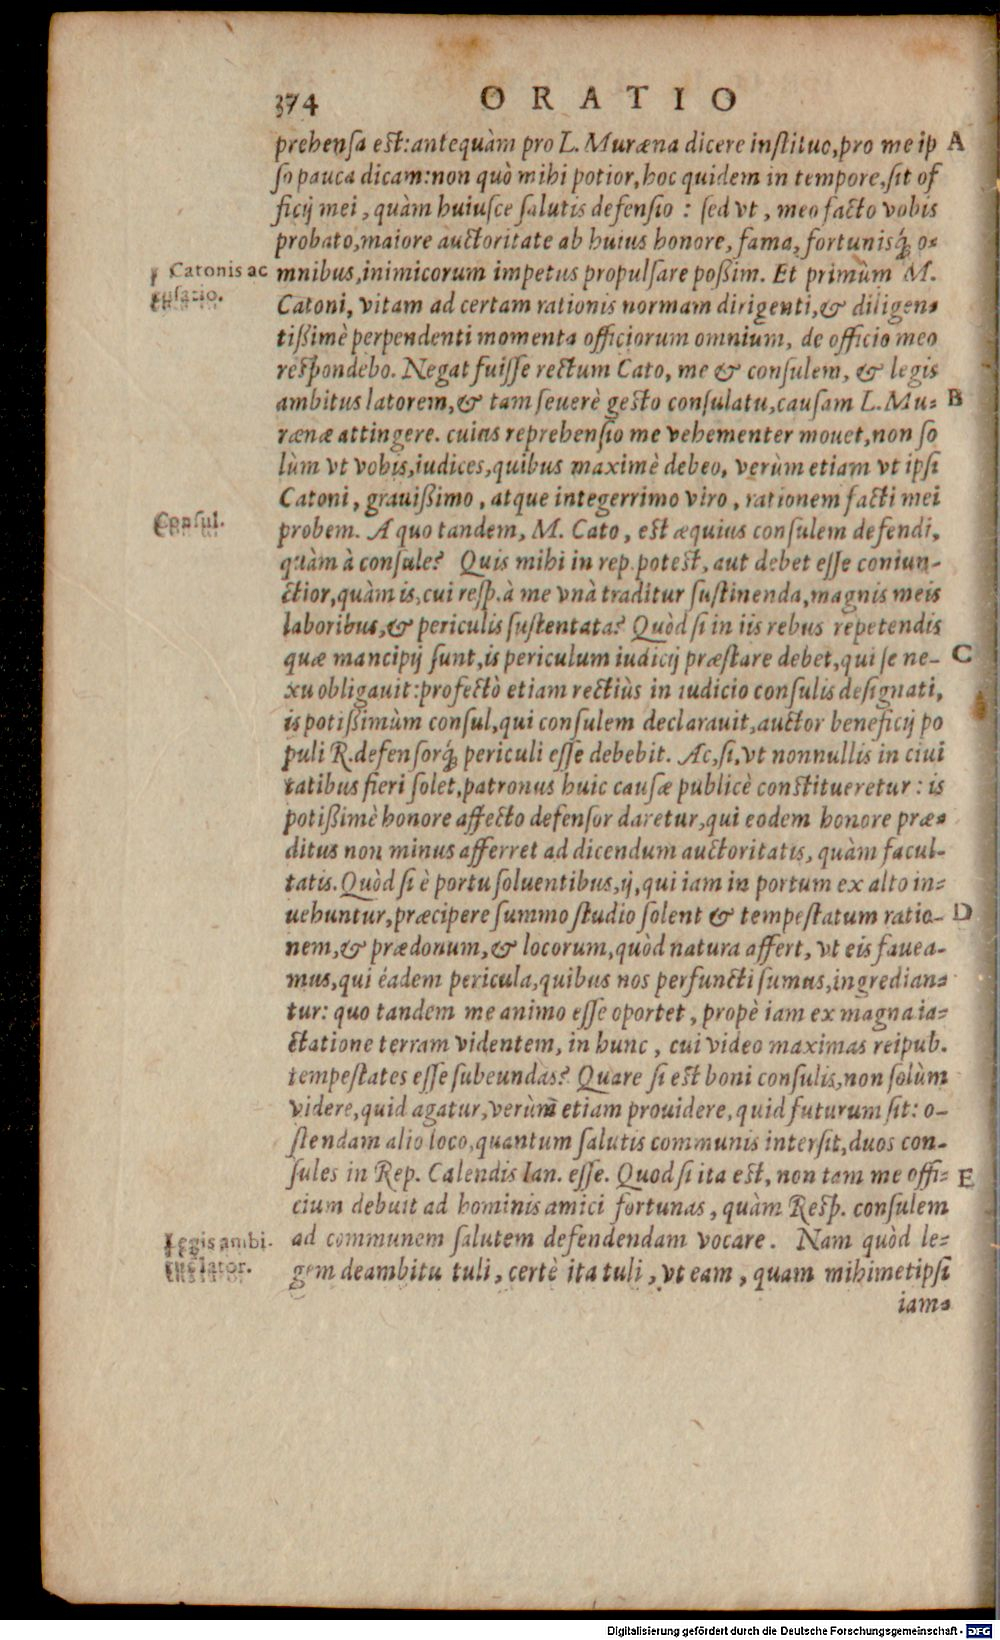 374 ORATIO
prehensa est: antequàm pro L. Muræna dicere instituo, pro me ip A
so pauca dicam: non quò mihi potior, hoc quidem in tempore, sit of
ficij mei, quàm huiusce salutis defensio: sed vt, meo facto vobis
probato, maiore auctoritate ab huius honore, fama, fortunisq́; o-
Catonis ac mnibus, inimicorum impetus propulsare poßim. Et primùm M.
cusatio. Catoni, vitam ad certam rationis normam dirigenti, & diligen-
tißimè perpendenti momenta officiorum omnium, de officio meo
respondebo. Negat fuisse rectum Cato, me & consulem, & legis
ambitus latorem, & tam seuerè gesto consulatu, causam L. Mu- B
rænæ attingere. cuius reprehensio me vehementer mouet, non so
lùm vt vobis, iudices, quibus maximè debeo, verùm etiam vt ipsi
Catoni, grauißimo, atque integerrimo viro, rationem facti mei
Consul. probem. A quo tandem, M. Cato, est æquius consulem defendi,
quàm à consule? Quis mihi in rep. potest, aut debet esse coniun-
ctior, quàm is, cui resp. à me vnà traditur sustinenda, magnis meis
laboribus, & periculis sustentata? Quòd si in iis rebus repetendis
quæ mancipij sunt, is periculum iudicij præstare debet, qui se ne- C
xu obligauit: profectò etiam rectiùs in iudicio consulis designati,
is potißimùm consul, qui consulem declarauit, auctor beneficij po
puli R. defensorq́; periculi esse debebit. Ac, si, vt nonnullis in ciui
tatibus fieri solet, patronus huic causæ publicè constitueretur: is
potißimè honore affecto defensor daretur, qui eodem honore præ-
ditus non minus afferret ad dicendum auctoritatis, quàm facul-
tatis. Quòd si è portu soluentibus, ij, qui iam in portum ex alto in-
uehuntur, præcipere summo studio solent & tempestatum ratio- D
nem, & prædonum, & locorum, quòd natura affert, vt eis fauea-
mus, qui éadem pericula, quibus nos perfuncti sumus, ingredian-
tur: quo tandem me animo esse oportet, propè iam ex magna ia-
ctatione terram videntem, in hunc, cui video maximas reipub.
tempestates esse subeundas? Quare si est boni consulis, non solùm
videre, quid agatur, verùm etiam prouidere, quid futurum sit: o-
stendam alio loco, quantum salutis communis intersit, duos con-
sules in Rep. Calendis Ian. esse. Quod si ita est, non tam me offi- E
cium debuit ad hominis amici fortunas, quàm Resp. consulem
Legis ambi- ad communem salutem defendendam vocare. Nam quòd le-
tus lator. gem deambitu tuli, certè ita tuli, vt eam, quam mihimetipsi
iam-
Digitalisierung gefördert durch die Deutsche Forschungsgemeinschaft - DFG